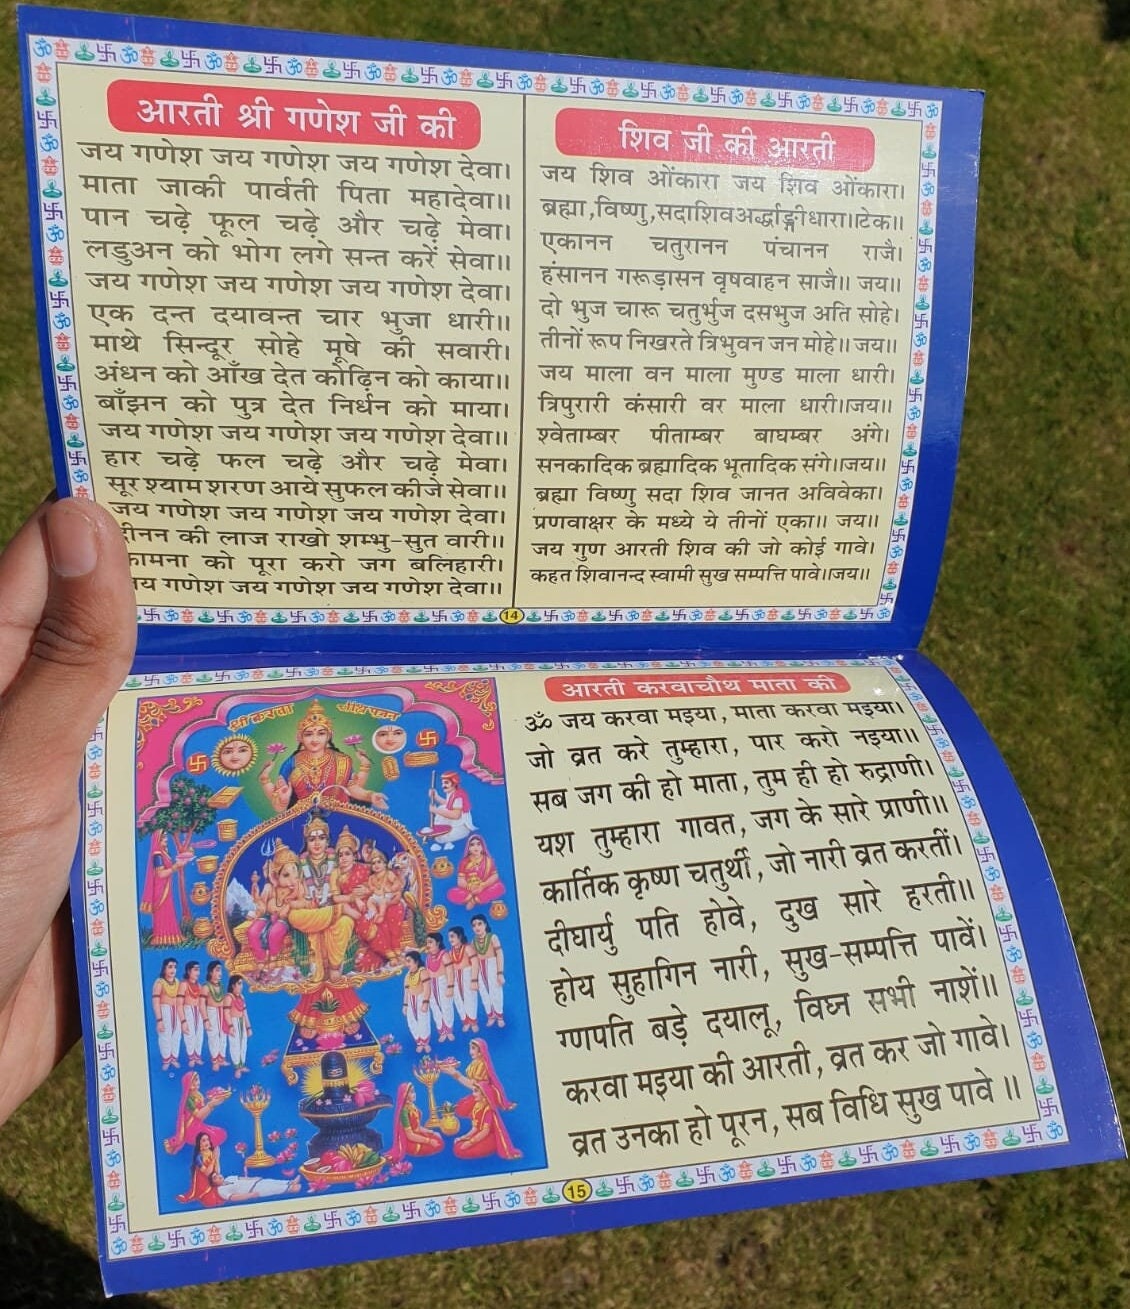 आरती श्री गणेश जी की
जय गणेश जय गणेश जय गणेश देवा।
माता जाकी पार्वती पिता महादेवा॥
पान चढ़े फूल चढ़े और चढ़े मेवा।
लडुअन को भोग लगे सन्त करें सेवा॥
जय गणेश जय गणेश जय गणेश देवा।
एक दन्त दयावन्त चार भुजा धारी॥
माथे सिन्दूर सोहे मूषे की सवारी।
अंधन को आँख देत कोढ़िन को काया॥
बाँझन को पुत्र देत निर्धन को माया।
जय गणेश जय गणेश जय गणेश देवा॥
हार चढ़े फल चढ़े और चढ़े मेवा।
सूर श्याम शरण आये सुफल कीजे सेवा॥
जय गणेश जय गणेश जय गणेश देवा।
दीनन की लाज राखो शम्भु-सुत वारी॥
कामना को पूरा करो जग बलिहारी।
य गणेश जय गणेश जय गणेश देवा॥
शिव जी की आरती
जय शिव ओंकारा जय शिव ओंकारा।
ब्रह्मा,विष्णु,सदाशिवअर्द्धाङ्गीधारा॥टेक॥
एकानन चतुरानन पंचानन राजै।
हंसानन गरूड़ासन वृषवाहन साजै॥ जय॥
दो भुज चारू चतुर्भुज दसभुज अति सोहे।
तीनों रूप निखरते त्रिभुवन जन मोहे॥ जय॥
जय माला वन माला मुण्ड माला धारी।
त्रिपुरारी कंसारी वर माला धारी॥जय॥
श्वेताम्बर पीताम्बर बाघम्बर अंगे।
सनकादिक ब्रह्मादिक भूतादिक संगे॥जय॥
ब्रह्मा विष्णु सदा शिव जानत अविवेका।
प्रणवाक्षर के मध्ये ये तीनों एका॥ जय॥
जय गुण आरती शिव की जो कोई गावे।
कहत शिवानन्द स्वामी सुख सम्पत्ति पावे॥जय॥
14
श्री करवा चौथ पूजन
आरती करवाचौथ माता की
ॐ जय करवा मइया, माता करवा मइया।
जो व्रत करे तुम्हारा, पार करो नइया॥
सब जग की हो माता, तुम ही हो रुद्राणी।
यश तुम्हारा गावत, जग के सारे प्राणी॥
कार्तिक कृष्ण चतुर्थी, जो नारी व्रत करतीं।
दीघार्यु पति होवे, दुख सारे हरती॥
होय सुहागिन नारी, सुख-सम्पत्ति पावें।
गणपति बड़े दयालू, विघ्न सभी नाशें॥
करवा मइया की आरती, व्रत कर जो गावे।
व्रत उनका हो पूरन, सब विधि सुख पावे ॥
15